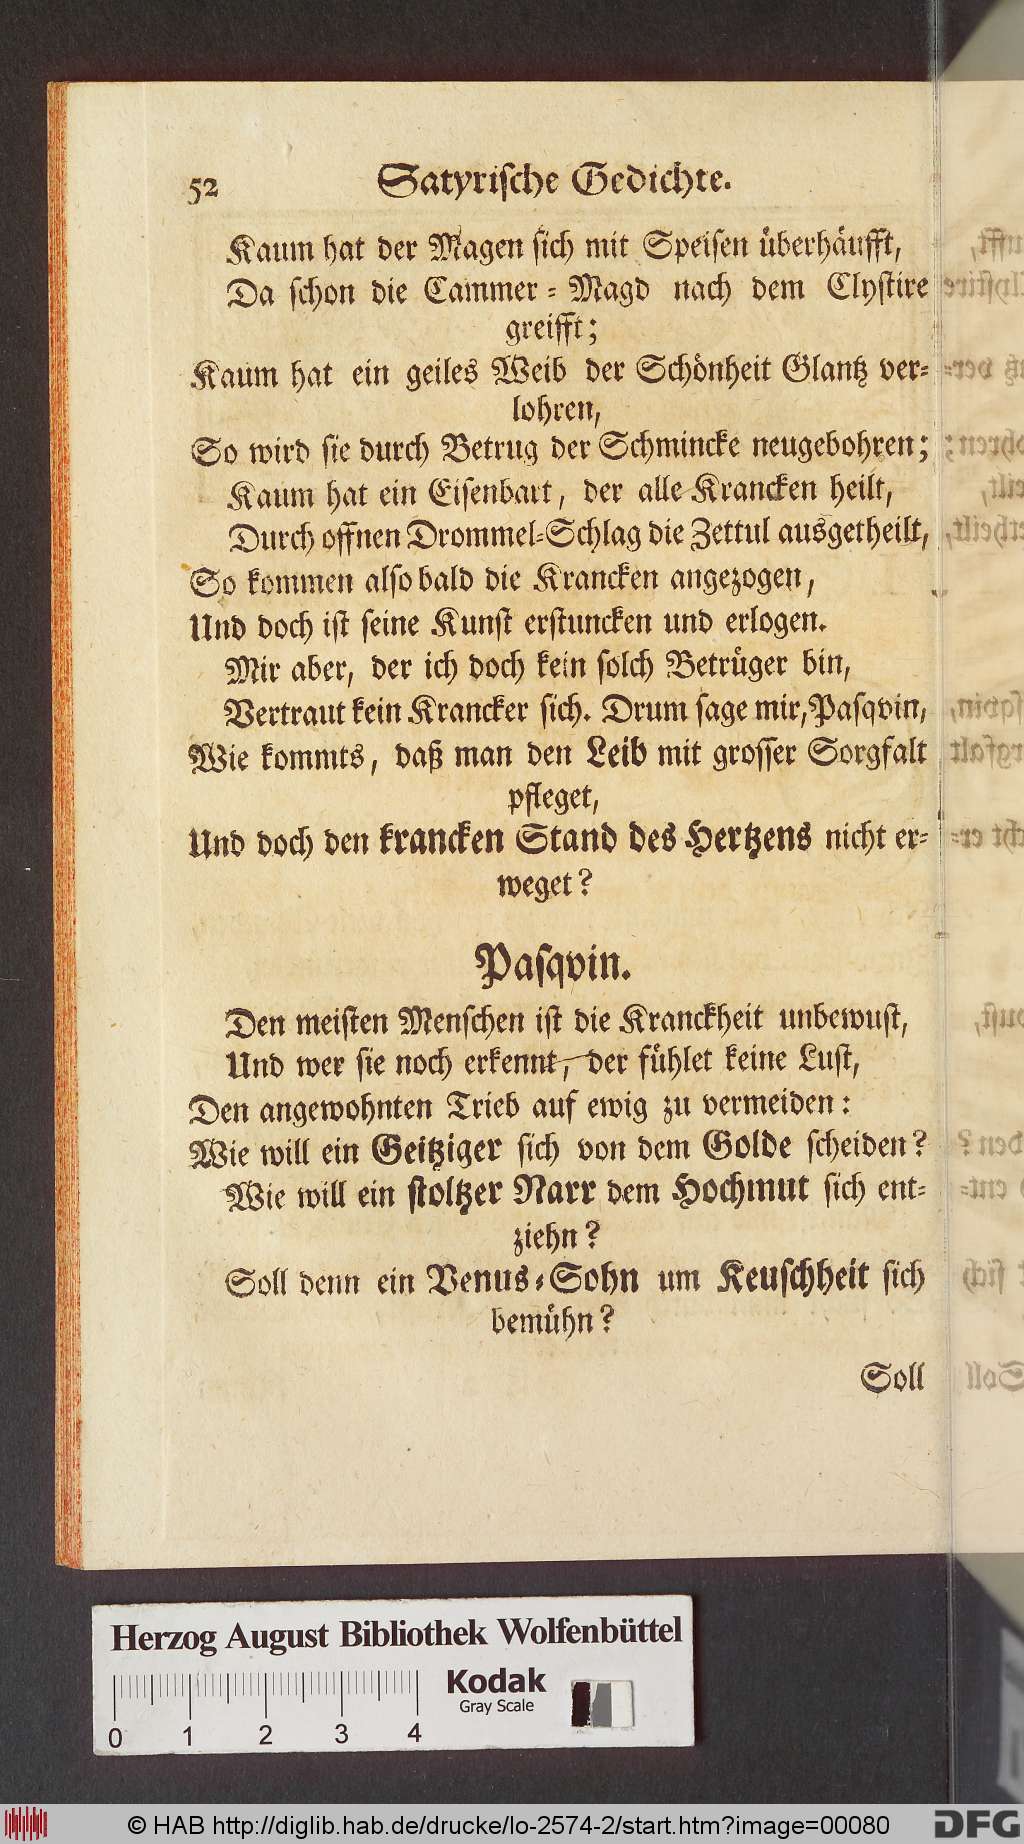 52 Satyrische Gedichte.
Kaum hat der Magen sich mit Speisen überhäufft,
Da schon die Cammer-Magd nach dem Clystire
greifft;
Kaum hat ein geiles Weib der Schönheit Glantz ver-
lohren,
So wird sie durch Betrug der Schmincke neugebohren;
Kaum hat ein Eisenbart, der alle Krancken heilt,
Durch offnen Drommel-Schlag die Zettul ausgetheilt,
So kommen also bald die Krancken angezogen,
Und doch ist seine Kunst erstuncken und erlogen.
Mir aber, der ich doch kein solch Betrüger bin,
Vertraut kein Krancker sich. Drum sage mir, Pasqvin,
Wie kommts, daß man den Leib mit grosser Sorgfalt
pfleget,
Und doch den krancken Stand des Hertzens nicht er-
weget?
Pasqvin.
Den meisten Menschen ist die Kranckheit unbewust,
Und wer sie noch erkennt, der fühlet keine Lust,
Den angewohnten Trieb auf ewig zu vermeiden:
Wie will ein Geitziger sich von dem Golde scheiden?
Wie will ein stoltzer Narr dem Hochmut sich ent-
ziehn?
Soll denn ein Venus-Sohn um Keuschheit sich
bemühn?
Soll
Herzog August Bibliothek Wolfenbüttel
Kodak
Gray Scale
0 1 2 3 4
© HAB http://diglib.hab.de/drucke/lo-2574-2/start.htm?image=00080
DFG